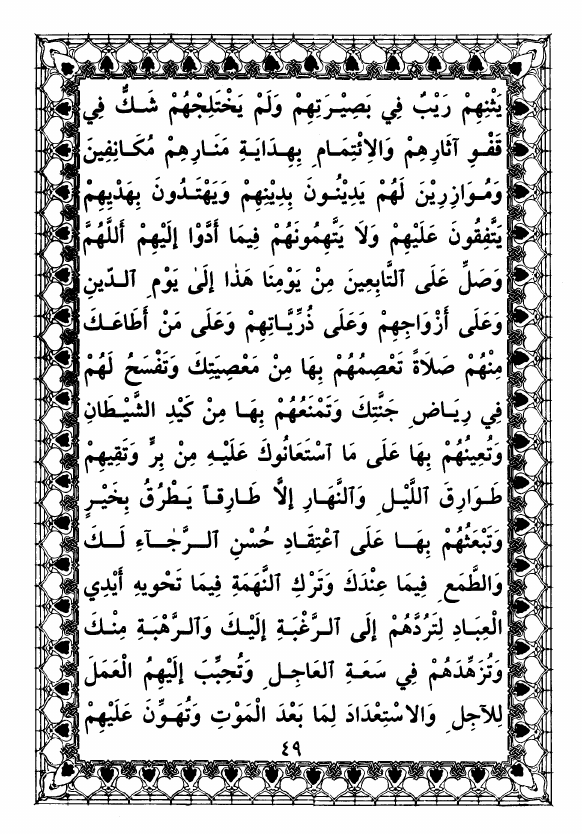 يَثْنِهِمْ رَيْبٌ فِي بَصِيْرَتِهِمْ وَلَمْ يَخْتَلِجْهُمْ شَكٌّ فِي
قَفْوِ آثَارِهِمْ وَالِائْتِمَامِ بِهِدَايَةِ مَنَارِهِمْ مُكَانِفِينَ
وَمُوَازِرِيْنَ لَهُمْ يَدِيْنُونَ بِدِيْنِهِمْ وَيَهْتَدُونَ بِهَدْيِهِمْ
يَتَّفِقُونَ عَلَيْهِمْ وَلَا يَتَّهِمُونَهُمْ فِيمَا أَدَّوْا إِلَيْهِمْ أَللَّهُمَّ
وَصَلِّ عَلَى ٱلتَّابِعِينَ مِنْ يَوْمِنَا هَذَا إِلَىٰ يَوْمِ ٱلدِّينِ
وَعَلَى أَزْوَاجِهِمْ وَعَلَى ذُرِّيَّاتِهِمْ وَعَلَى مَنْ أَطَاعَكَ
مِنْهُمْ صَلَاةً تَعْصِمُهُمْ بِهَا مِنْ مَعْصِيَتِكَ وَتَفْسَحُ لَهُمْ
فِي رِيَاضِ جَنَّتِكَ وَتَمْنَعُهُمْ بِهَا مِنْ كَيْدِ الشَّيْطَانِ
وَتُعِينُهُمْ بِهَا عَلَى مَا ٱسْتَعَانُوكَ عَلَيْهِ مِنْ بِرٍّ وَتَقِيهِمْ
طَوَارِقَ اللَّيْلِ وَٱلنَّهَارِ إِلَّا طَارِقاً يَطْرُقُ بِخَيْرٍ
وَتَبْعَثُهُمْ بِهَا عَلَى ٱعْتِقَادِ حُسْنِ ٱلرَّجَآءِ لَكَ
وَالطَّمَعِ فِيمَا عِنْدَكَ وَتَرْكِ النَّهَمَةِ فِيمَا تَحْوِيهِ أَيْدِي
الْعِبَادِ لِتَرُدَّهُمْ إِلَى ٱلرَّغْبَةِ إِلَيْكَ وَٱلرَّهْبَةِ مِنْكَ
وَتُزَهِّدَهُمْ فِي سَعَةِ ٱلعَاجِلِ وَتُحَبِّبَ إِلَيْهِمُ الْعَمَلَ
لِلآجِلِ وَالاسْتِعْدَادَ لِمَا بَعْدَ الْمَوْتِ وَتُهَوِّنَ عَلَيْهِمْ
٤٩